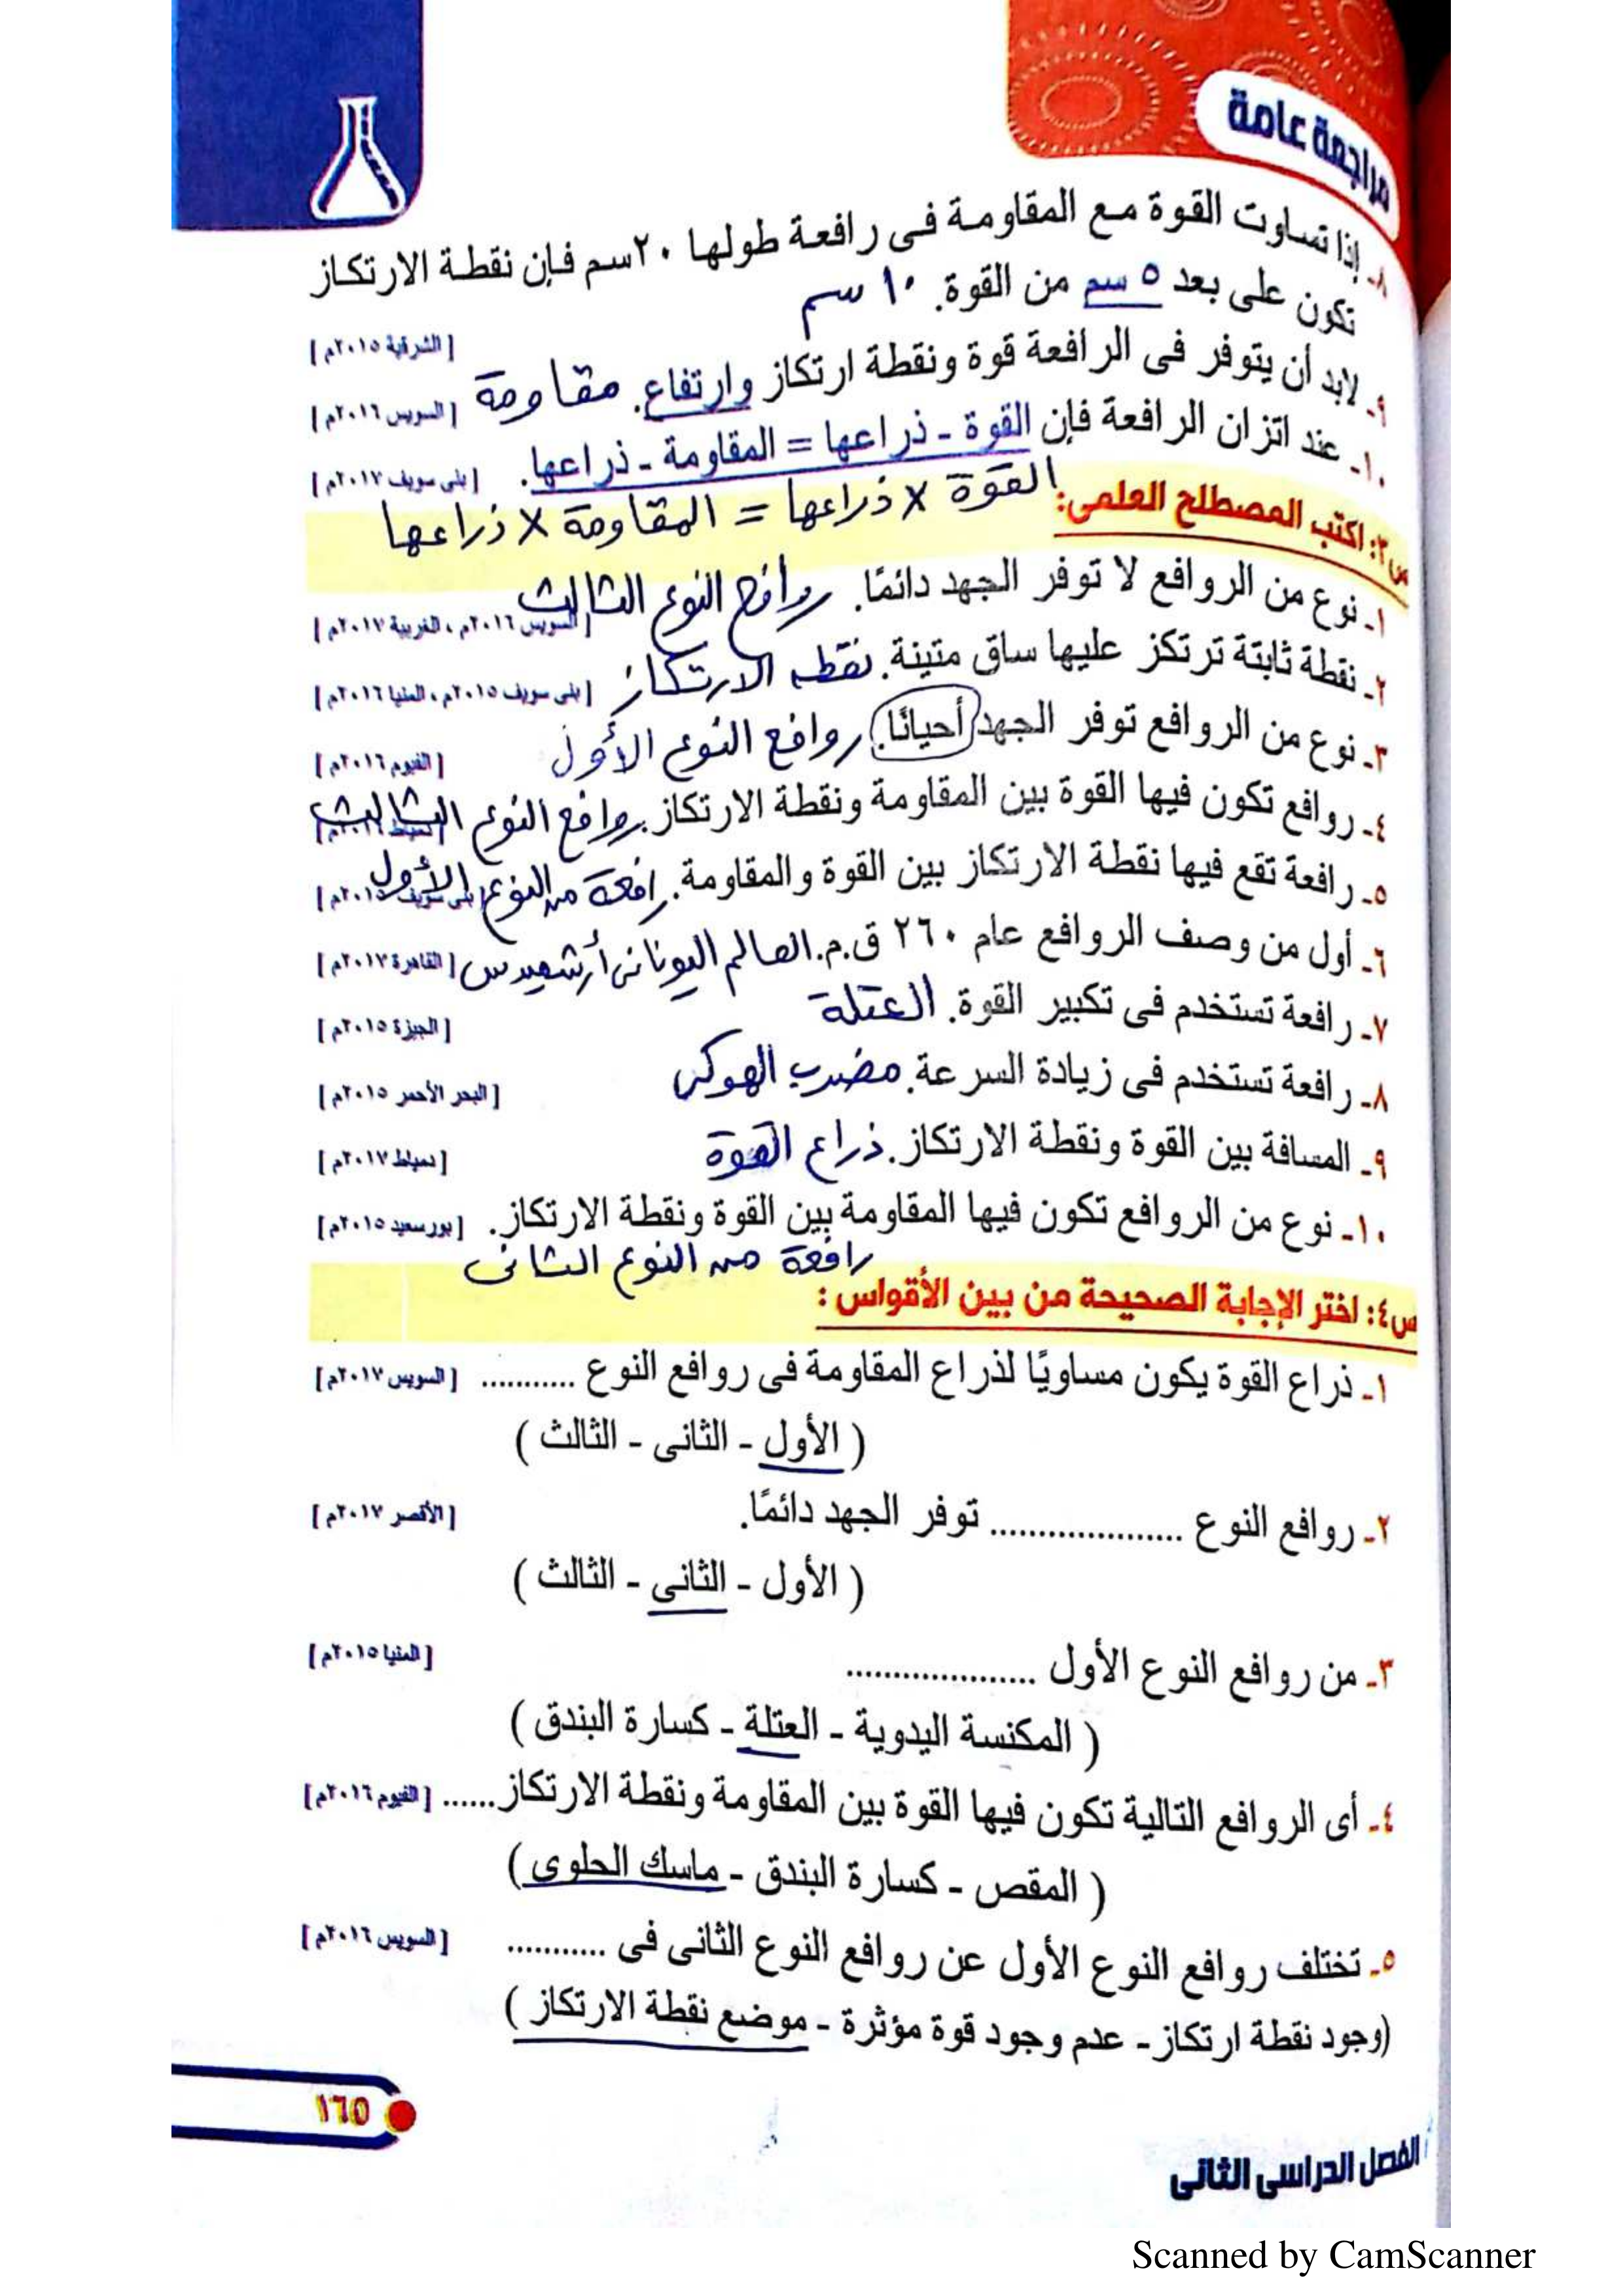 مراجعة عامة
٨- إذا تساوت القوة مع المقاومة فى رافعة طولها ٢٠سم فإن نقطة الارتكاز
تكون على بعد ٥ سم من القوة. ١٠ سم
[ الشرقية ٢٠١٥م ]
٩- لابد أن يتوفر فى الرافعة قوة ونقطة ارتكاز وارتفاع. مقاومة [ السويس ٢٠١٦م ]
١٠- عند اتزان الرافعة فإن القوة - ذراعها = المقاومة - ذراعها. [ بنى سويف ٢٠١٧م ]
القوة × ذراعها = المقاومة × ذراعها
س٣: اكتب المصطلح العلمى:
١- نوع من الروافع لا توفر الجهد دائمًا. روافع النوع الثالث
[ السويس ٢٠١٦م ، الغربية ٢٠١٧م ]
٢- نقطة ثابتة ترتكز عليها ساق متينة. نقطه الارتكاز [ بنى سويف ٢٠١٥م ، المنيا ٢٠١٦م ]
٣- نوع من الروافع توفر الجهد أحيانًا. روافع النوع الأول [ الفيوم ٢٠١٦م ]
٤- روافع تكون فيها القوة بين المقاومة ونقطة الارتكاز. روافع النوع الثالث
٥- رافعة تقع فيها نقطة الارتكاز بين القوة والمقاومة. رافعة من النوع الأول [ بنى سويف ٢٠١٥م ]
٦- أول من وصف الروافع عام ٢٦٠ ق.م. العالم اليونانى أرشميدس [ القاهرة ٢٠١٧م ]
٧- رافعة تستخدم فى تكبير القوة. العتلة [ الجيزة ٢٠١٥م ]
٨- رافعة تستخدم فى زيادة السرعة. مضرب الهوكى [ البحر الأحمر ٢٠١٥م ]
٩- المسافة بين القوة ونقطة الارتكاز. ذراع القوة [ دمياط ٢٠١٧م ]
١٠- نوع من الروافع تكون فيها المقاومة بين القوة ونقطة الارتكاز. [ بورسعيد ٢٠١٥م ]
رافعة من النوع الثانى
س٤: اختر الإجابة الصحيحة من بين الأقواس :
١- ذراع القوة يكون مساويًا لذراع المقاومة فى روافع النوع ........... [ السويس ٢٠١٧م ]
( الأول - الثانى - الثالث )
٢- روافع النوع .................... توفر الجهد دائمًا. [ الأقصر ٢٠١٧م ]
( الأول - الثانى - الثالث )
٣- من روافع النوع الأول .................... [ المنيا ٢٠١٥م ]
( المكنسة اليدوية - العتلة - كسارة البندق )
٤- أى الروافع التالية تكون فيها القوة بين المقاومة ونقطة الارتكاز...... [ الفيوم ٢٠١٦م ]
( المقص - كسارة البندق - ماسك الحلوى )
٥- تختلف روافع النوع الأول عن روافع النوع الثانى فى ........... [ السويس ٢٠١٦م ]
(وجود نقطة ارتكاز - عدم وجود قوة مؤثرة - موضع نقطة الارتكاز )
١٦٥
الفصل الدراسى الثانى
Scanned by CamScanner